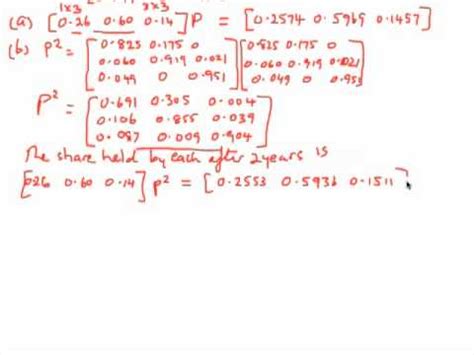 1x3 3x3
(a) [0.26 0.60 0.14] P = [0.2574 0.5969 0.1457]
(b) P² = [0.825 0.175 0] [0.825 0.175 0]
[0.060 0.919 0.021] [0.060 0.919 0.021]
[0.049 0 0.951] [0.049 0 0.953]
P² = [0.691 0.305 0.004]
[0.106 0.855 0.039]
[0.087 0.009 0.904]
The share held by each after 2 years is
[0.26 0.60 0.14] P² = [0.2553 0.5936 0.1511]